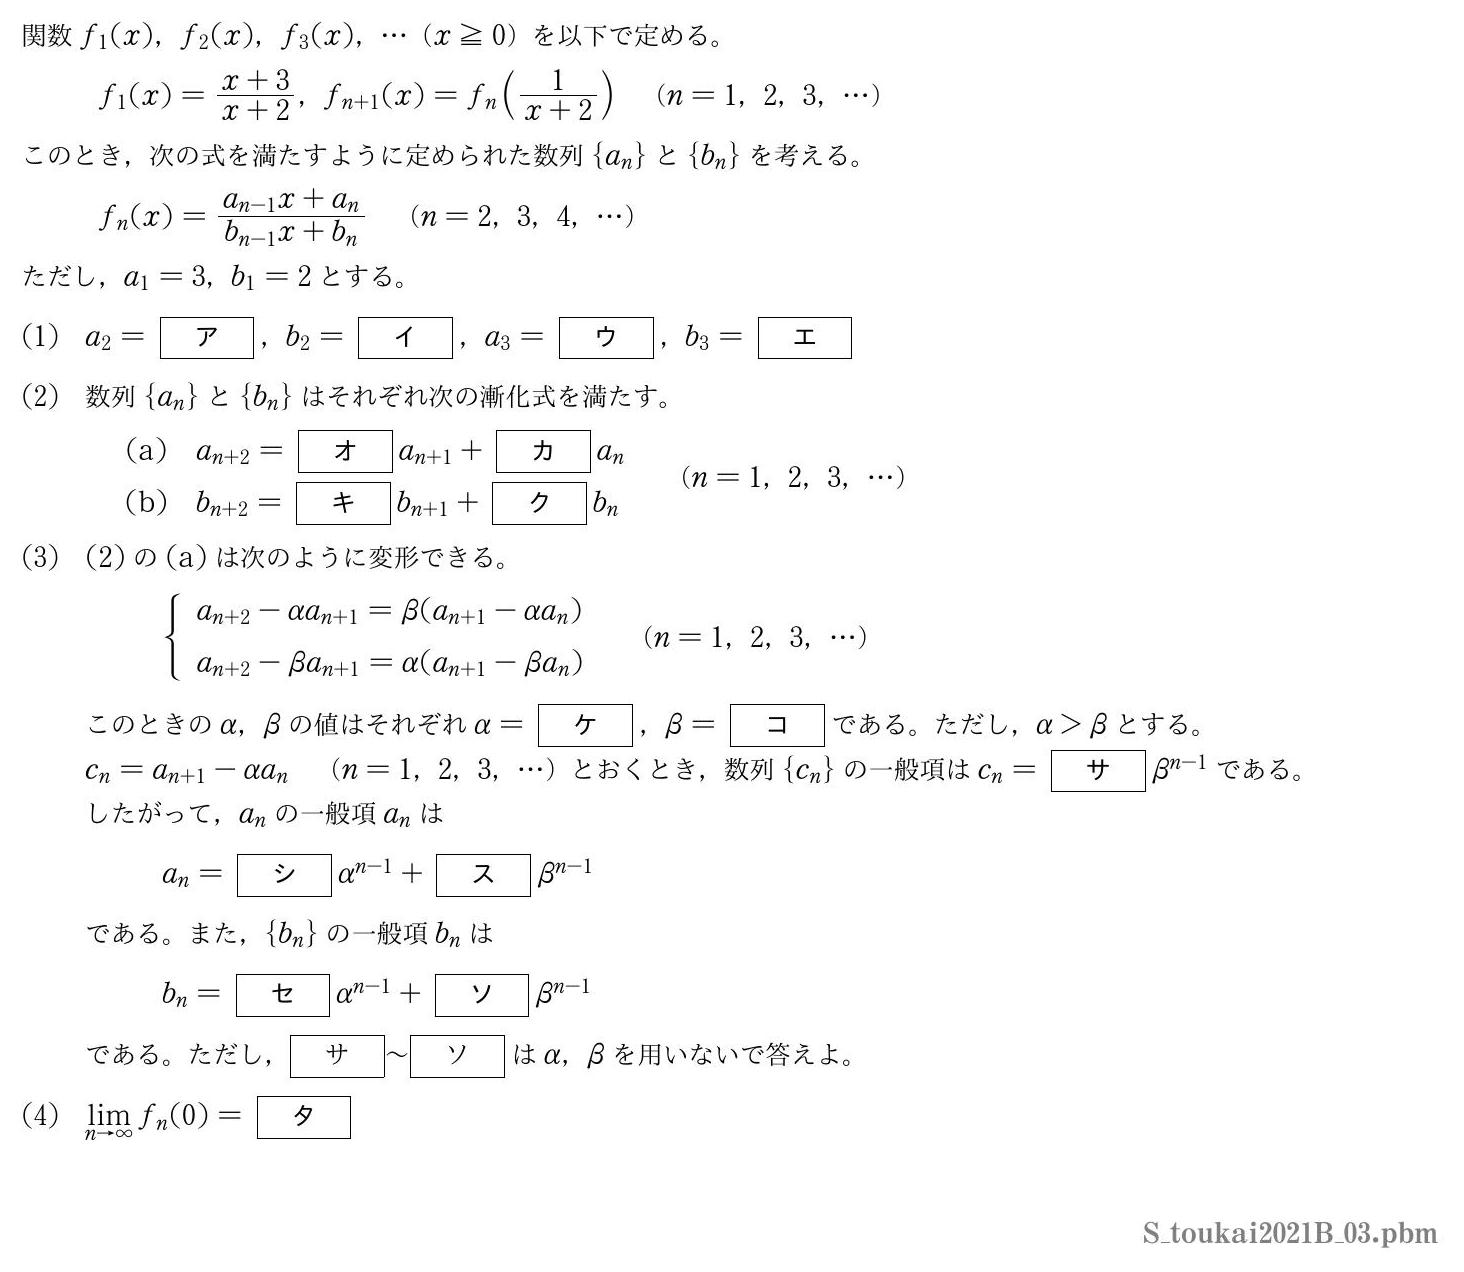 関数 f₁(x), f₂(x), f₃(x), … (x ≧ 0) を以下で定める。
f₁(x) = (x + 3)/(x + 2), fₙ₊₁(x) = fₙ(1/(x + 2)) (n = 1, 2, 3, …)
このとき,次の式を満たすように定められた数列 {aₙ} と {bₙ} を考える。
fₙ(x) = (aₙ₋₁x + aₙ)/(bₙ₋₁x + bₙ) (n = 2, 3, 4, …)
ただし,a₁ = 3, b₁ = 2 とする。
(1) a₂ = ア, b₂ = イ, a₃ = ウ, b₃ = エ
(2) 数列 {aₙ} と {bₙ} はそれぞれ次の漸化式を満たす。
(a) aₙ₊₂ = オ aₙ₊₁ + カ aₙ
(n = 1, 2, 3, …)
(b) bₙ₊₂ = キ bₙ₊₁ + ク bₙ
(3) (2) の (a) は次のように変形できる。
aₙ₊₂ − αaₙ₊₁ = β(aₙ₊₁ − αaₙ)
(n = 1, 2, 3, …)
aₙ₊₂ − βaₙ₊₁ = α(aₙ₊₁ − βaₙ)
このときの α, β の値はそれぞれ α = ケ, β = コ である。ただし,α > β とする。
cₙ = aₙ₊₁ − αaₙ (n = 1, 2, 3, …) とおくとき,数列 {cₙ} の一般項は cₙ = サ βⁿ⁻¹ である。
したがって,aₙ の一般項 aₙ は
aₙ = シ αⁿ⁻¹ + ス βⁿ⁻¹
である。また,{bₙ} の一般項 bₙ は
bₙ = セ αⁿ⁻¹ + ソ βⁿ⁻¹
である。ただし,サ〜ソ は α, β を用いないで答えよ。
(4) lim n→∞ fₙ(0) = タ
S_toukai2021B_03.pbm